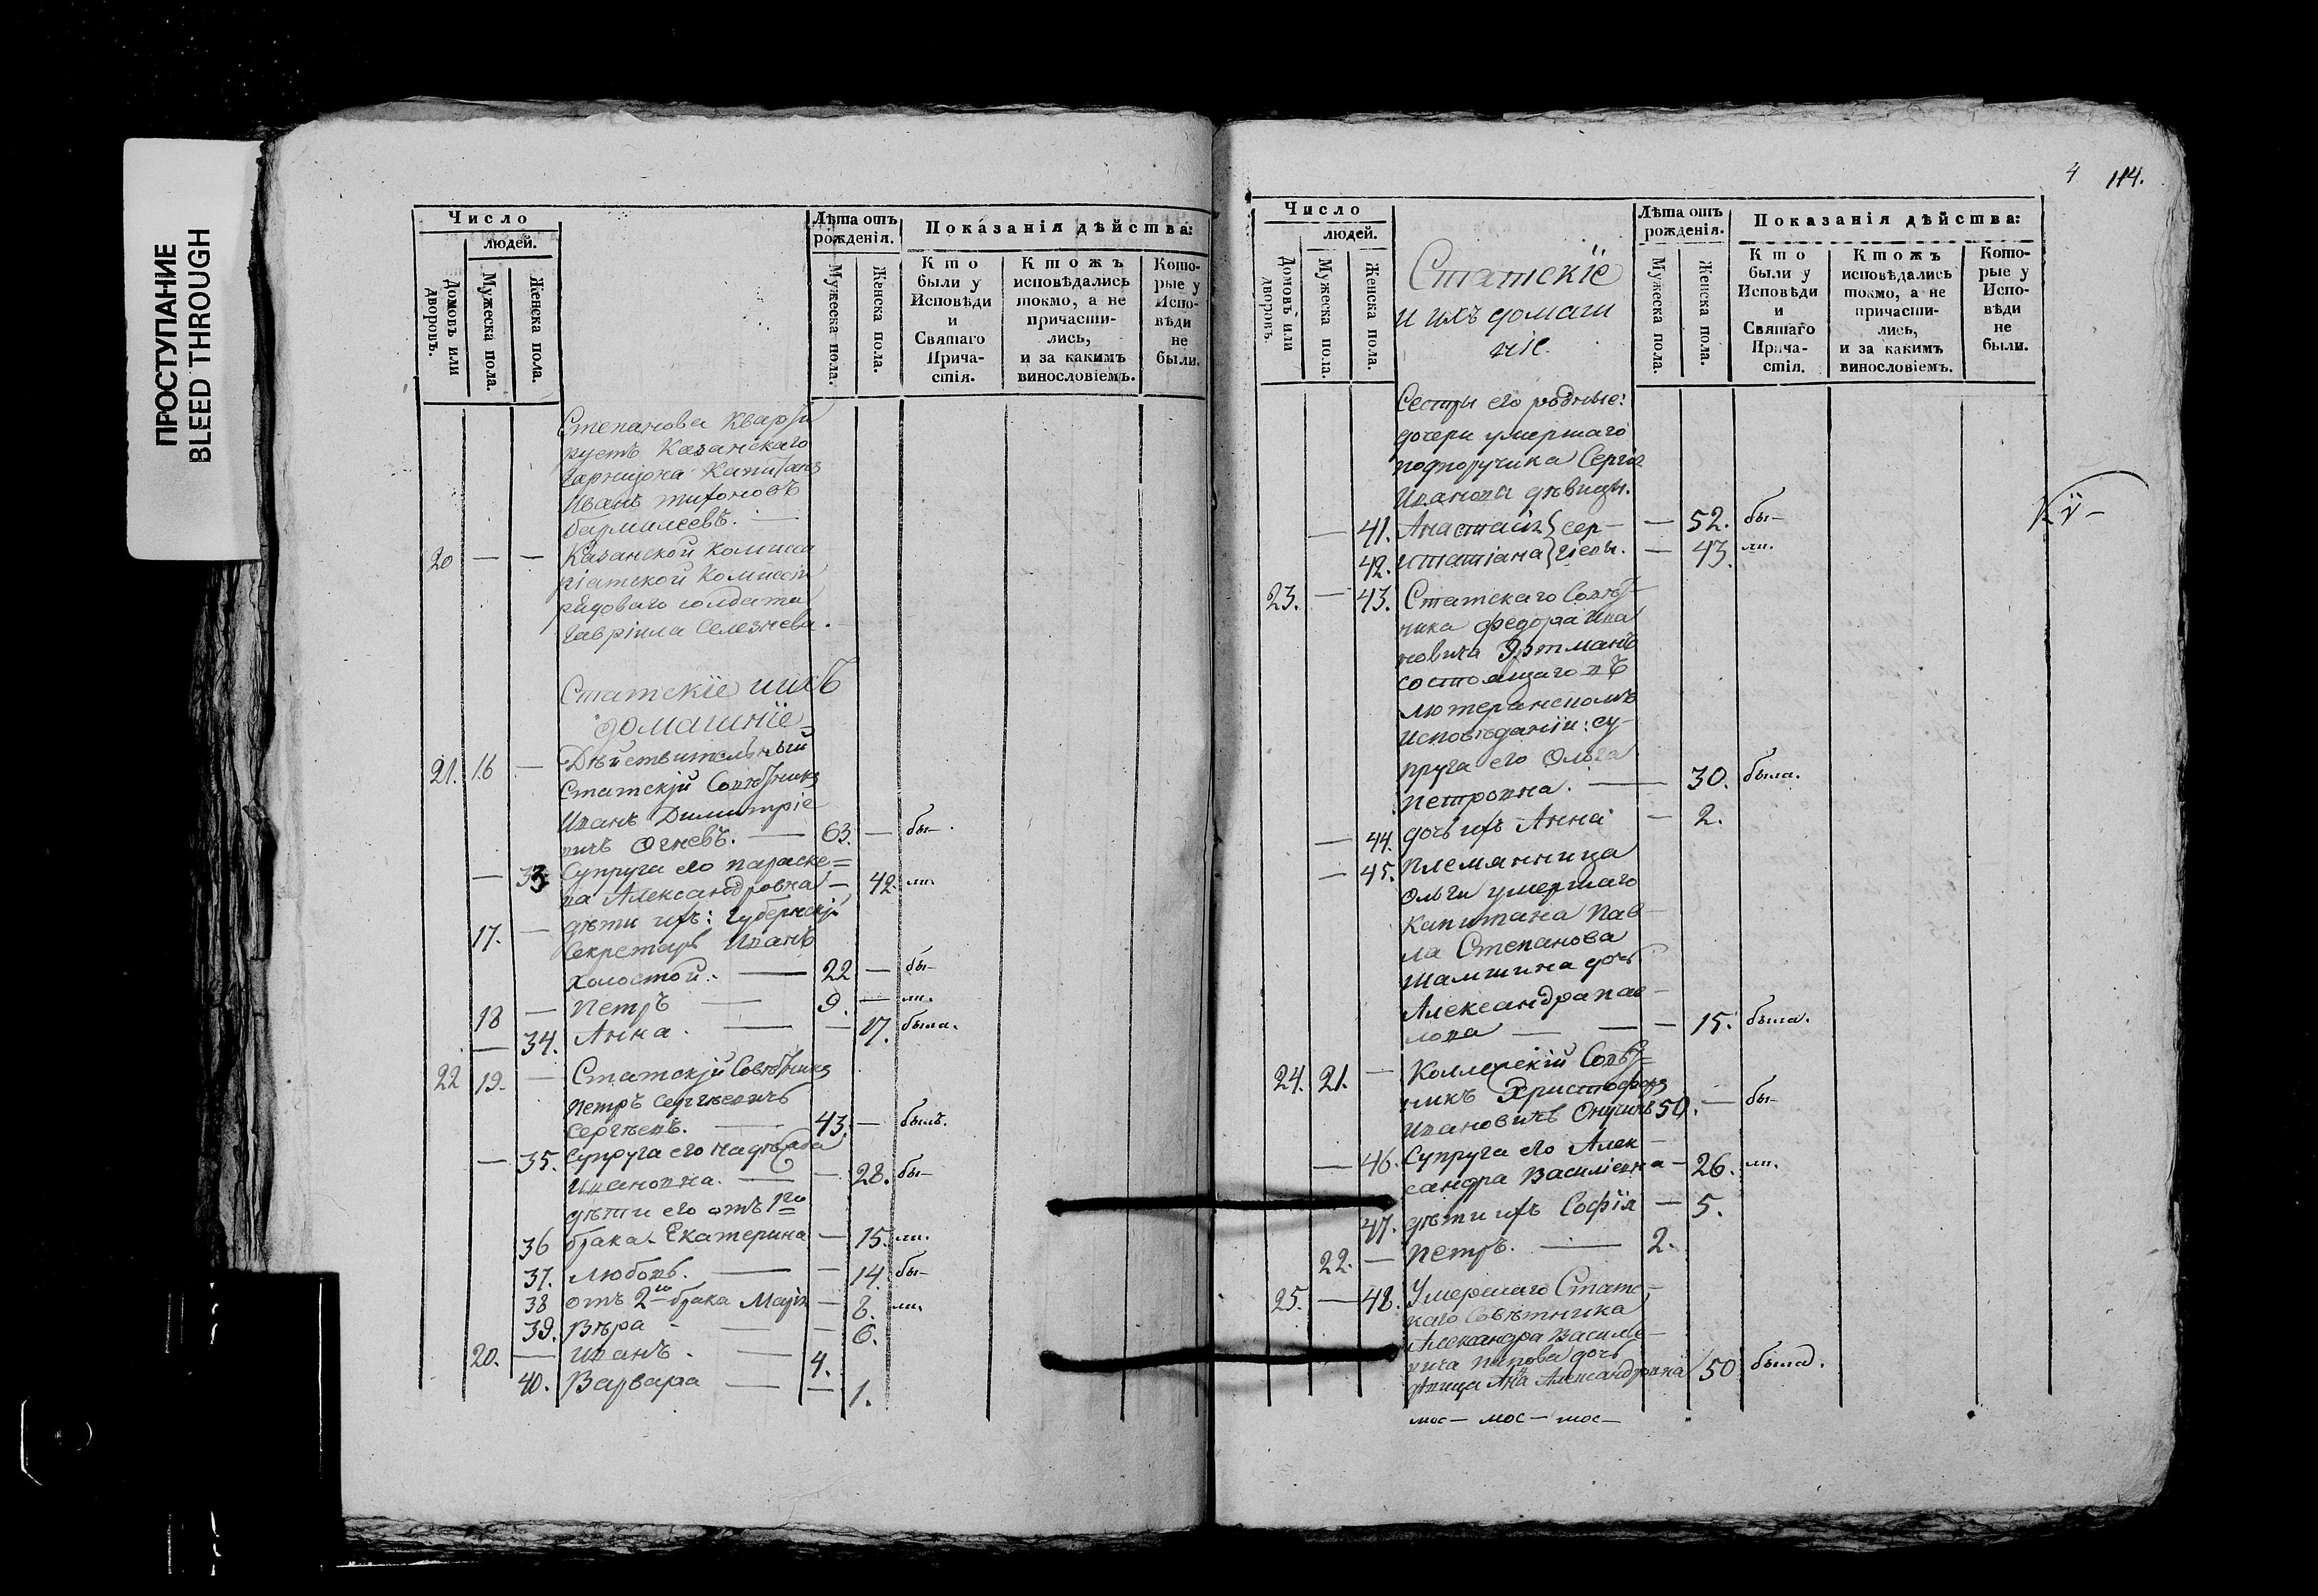 ПРОСТУПАНИЕ
BLEED THROUGH
Число
людей.
Домовъ или дворовъ.
Мужеска пола.
Женска пола.
Лѣта отъ рожденія.
Мужеска пола.
Женска пола.
Показанія дѣйства:
Кто были у Исповѣди и Святаго Прича-стія.
Ктожъ исповѣдались токмо, а не причасти-лись, и за какимъ винословіемъ.
Кото-рые у Испо-вѣди не были.
Степанова Кварти
рустъ Казанскаго
Гарнизона Капитанъ
Иванъ Тихоновъ
Бармалеевъ. —
20 — — Казанской Комиса
ріатской Комисіи
рядоваго солдата
Гавріила Селезнева.
Статскіе и ихъ
домашніе
21. 16 — Дѣйствительный
Статскій Совѣтникъ
Иванъ Димитріе
вичъ Огневъ. — 63. — бы—
— 33 Супруга его Параске=
ва Александровна — 42. ли.
17. — дѣти ихъ: Губернскій
Секретарь Иванъ
холостой. — 22 — бы—
18 — Петръ — 9. — ли.
— 34. Анна. — — 17. была.
22 19. — Статскій Совѣтникъ
Петръ Сергѣевичъ
Сергѣевъ. — 43. — былъ.
— 35. Супруга его Надѣжда
Ивановна. — — 28. бы—
дѣти его отъ 1го
36 брака. Екатерина — 15. ли.
37. Любовь. — — 14. бы—
38 отъ 2го брака Марія — 8. ли.
39. Вѣра — — 6.
20. — Иванъ. — 4.
40. Варвара — — 1.
4 114.
Число
людей.
Домовъ или дворовъ.
Мужеска пола.
Женска пола.
Статскіе
и ихъ домаш
ніе.
Лѣта отъ рожденія.
Мужеска пола.
Женска пола.
Показанія дѣйства:
Кто были у Исповѣди и Святаго Прича-стія.
Ктожъ исповѣдались токмо, а не причасти-лись, и за какимъ винословіемъ.
Кото-рые у Испо-вѣди не были.
Сестры его родные:
дочери умершаго
подпоручика Сергія
Иванова дѣвицы.
— 41. Анастасія сер— — 52. бы—
42. и Татіана гѣевы. — 43. ли.
23. — 43. Статскаго Совѣт—
ника Федора Ива
новича Эртманъ
состоящаго въ
Лютеранскомъ
исповѣданіи: су—
пруга его Ольга
Петровна. — 30. была.
— 44. дочь ихъ Анна — 2.
— 45. Племянница
Ольги умершаго
Капитана Пав—
ла Степанова
Шамшина дочь
Александра Пав—
лова — — 15. была.
24. 21. — Коллежскій Совѣт=
никъ Христофоръ
Ивановичъ Онучинъ 50. — бы—
— 46. Супруга его Алек—
сандра Василіевна — 26. ли.
47. дѣти ихъ Софія — 5.
22. — Петръ. — 2.
25. — 48. Умершаго Статс—
каго Совѣтника
Александра Василье—
вича Попова дочь
дѣвица Анна Александровна 50 была.